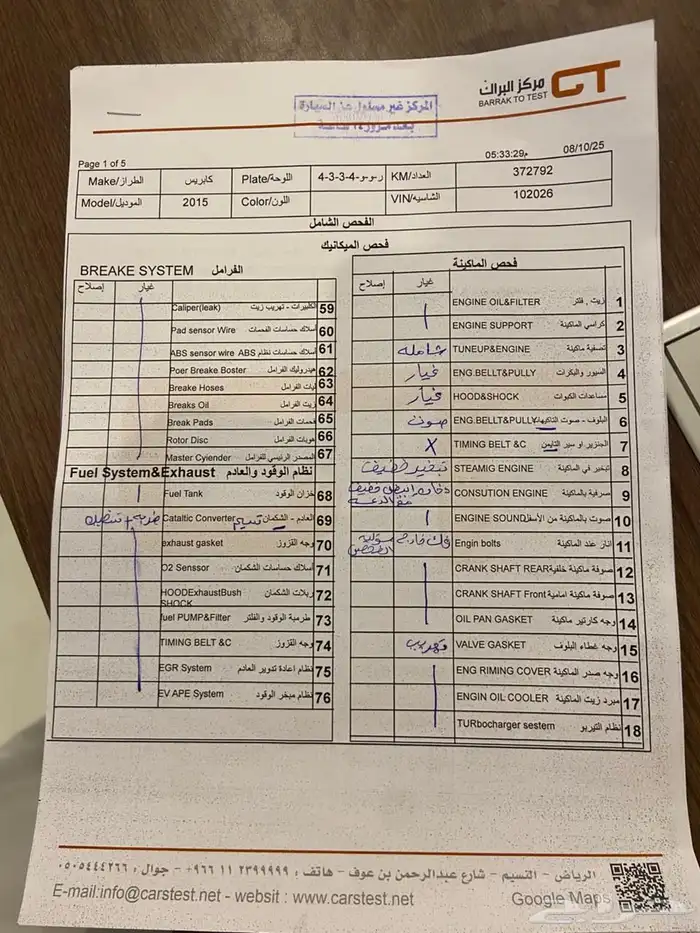 مركز البراك
BARRAK TO TEST
CT
المركز غير مسئول عن السيارة
بعد مرور ٢٤ ساعة
Page 1 of 5
05:33:29م 08/10/25
Make/الطراز كابريس Plate/اللوحة 4-3-3-4-ر-و-و KM/العداد 372792
Model/الموديل 2015 Color/اللون VIN/الشاسيه 102026
الفحص الشامل
فحص الميكانيك
فحص الماكينة
إصلاح غيار
ENGINE OIL&FILTER زيت , فلتر 1
ENGINE SUPPORT كراسي الماكينة 2
شامله TUNEUP&ENGINE تصفية ماكينة 3
غيار ENG.BELLT&PULLY السيور والبكرات 4
غيار HOOD&SHOCK مساعدات الكبوت 5
صوت ENG.BELLT&PULLY البلوف - صوت التاكيهات 6
X TIMING BELT &C الجنزير او سير التايمن 7
تبخير خفيف STEAMIG ENGINE تبخير في الماكينة 8
CONSUTION ENGINE صرفية بالماكينة 9
ENGINE SOUND صوت بالماكينة من الأسفل 10
Engin bolts اثار عند الماكينة 11
CRANK SHAFT REAR صوفة ماكينة خلفية 12
CRANK SHAFT Front صوفة ماكينة امامية 13
OIL PAN GASKET وجه كارتير ماكينة 14
تهريب VALVE GASKET وجه غطاء البلوف 15
ENG RIMING COVER وجه صدر الماكينة 16
ENGIN OIL COOLER مبرد زيت الماكينة 17
TURbocharger sestem نظام التيربو 18
BREAKE SYSTEM الفرامل
إصلاح غيار
Caliper(leak) الكليبرات - تهريب زيت 59
Pad sensor Wire اسلاك حساسات الفحمات 60
ABS sensor wire ABS اسلاك حساسات نظام 61
Poer Breake Boster هيدروليك الفرامل 62
Breake Hoses ليات الفرامل 63
Breaks Oil زيت الفرامل 64
Break Pads فحمات الفرامل 65
Rotor Disc هوبات الفرامل 66
Master Cyiender المصدر الرئيسي للفرامل 67
Fuel System&Exhaust نظام الوقود والعادم
Fuel Tank خزان الوقود 68
Cataltic Converter العادم - الشكمان 69
exhaust gasket وجه القزوز 70
O2 Senssor اسلاك حساسات الشكمان 71
HOODExhaustBush SHOCK ربلات الشكمان 72
fuel PUMP&Filter طرمبة الوقود والفلتر 73
TIMING BELT &C وجه القزوز 74
EGR System نظام اعادة تدوير العادم 75
EV APE System نظام مبخر الوقود 76
الرياض - النسيم - شارع عبدالرحمن بن عوف - هاتف : ٢٣٩٩٩٩٩ ١١ ٩٦٦+ - جوال : ٠٥٠٥٤٤٤٢٦٦
E-mail:info@carstest.net - websit : www.carstest.net
Google Maps
حراج